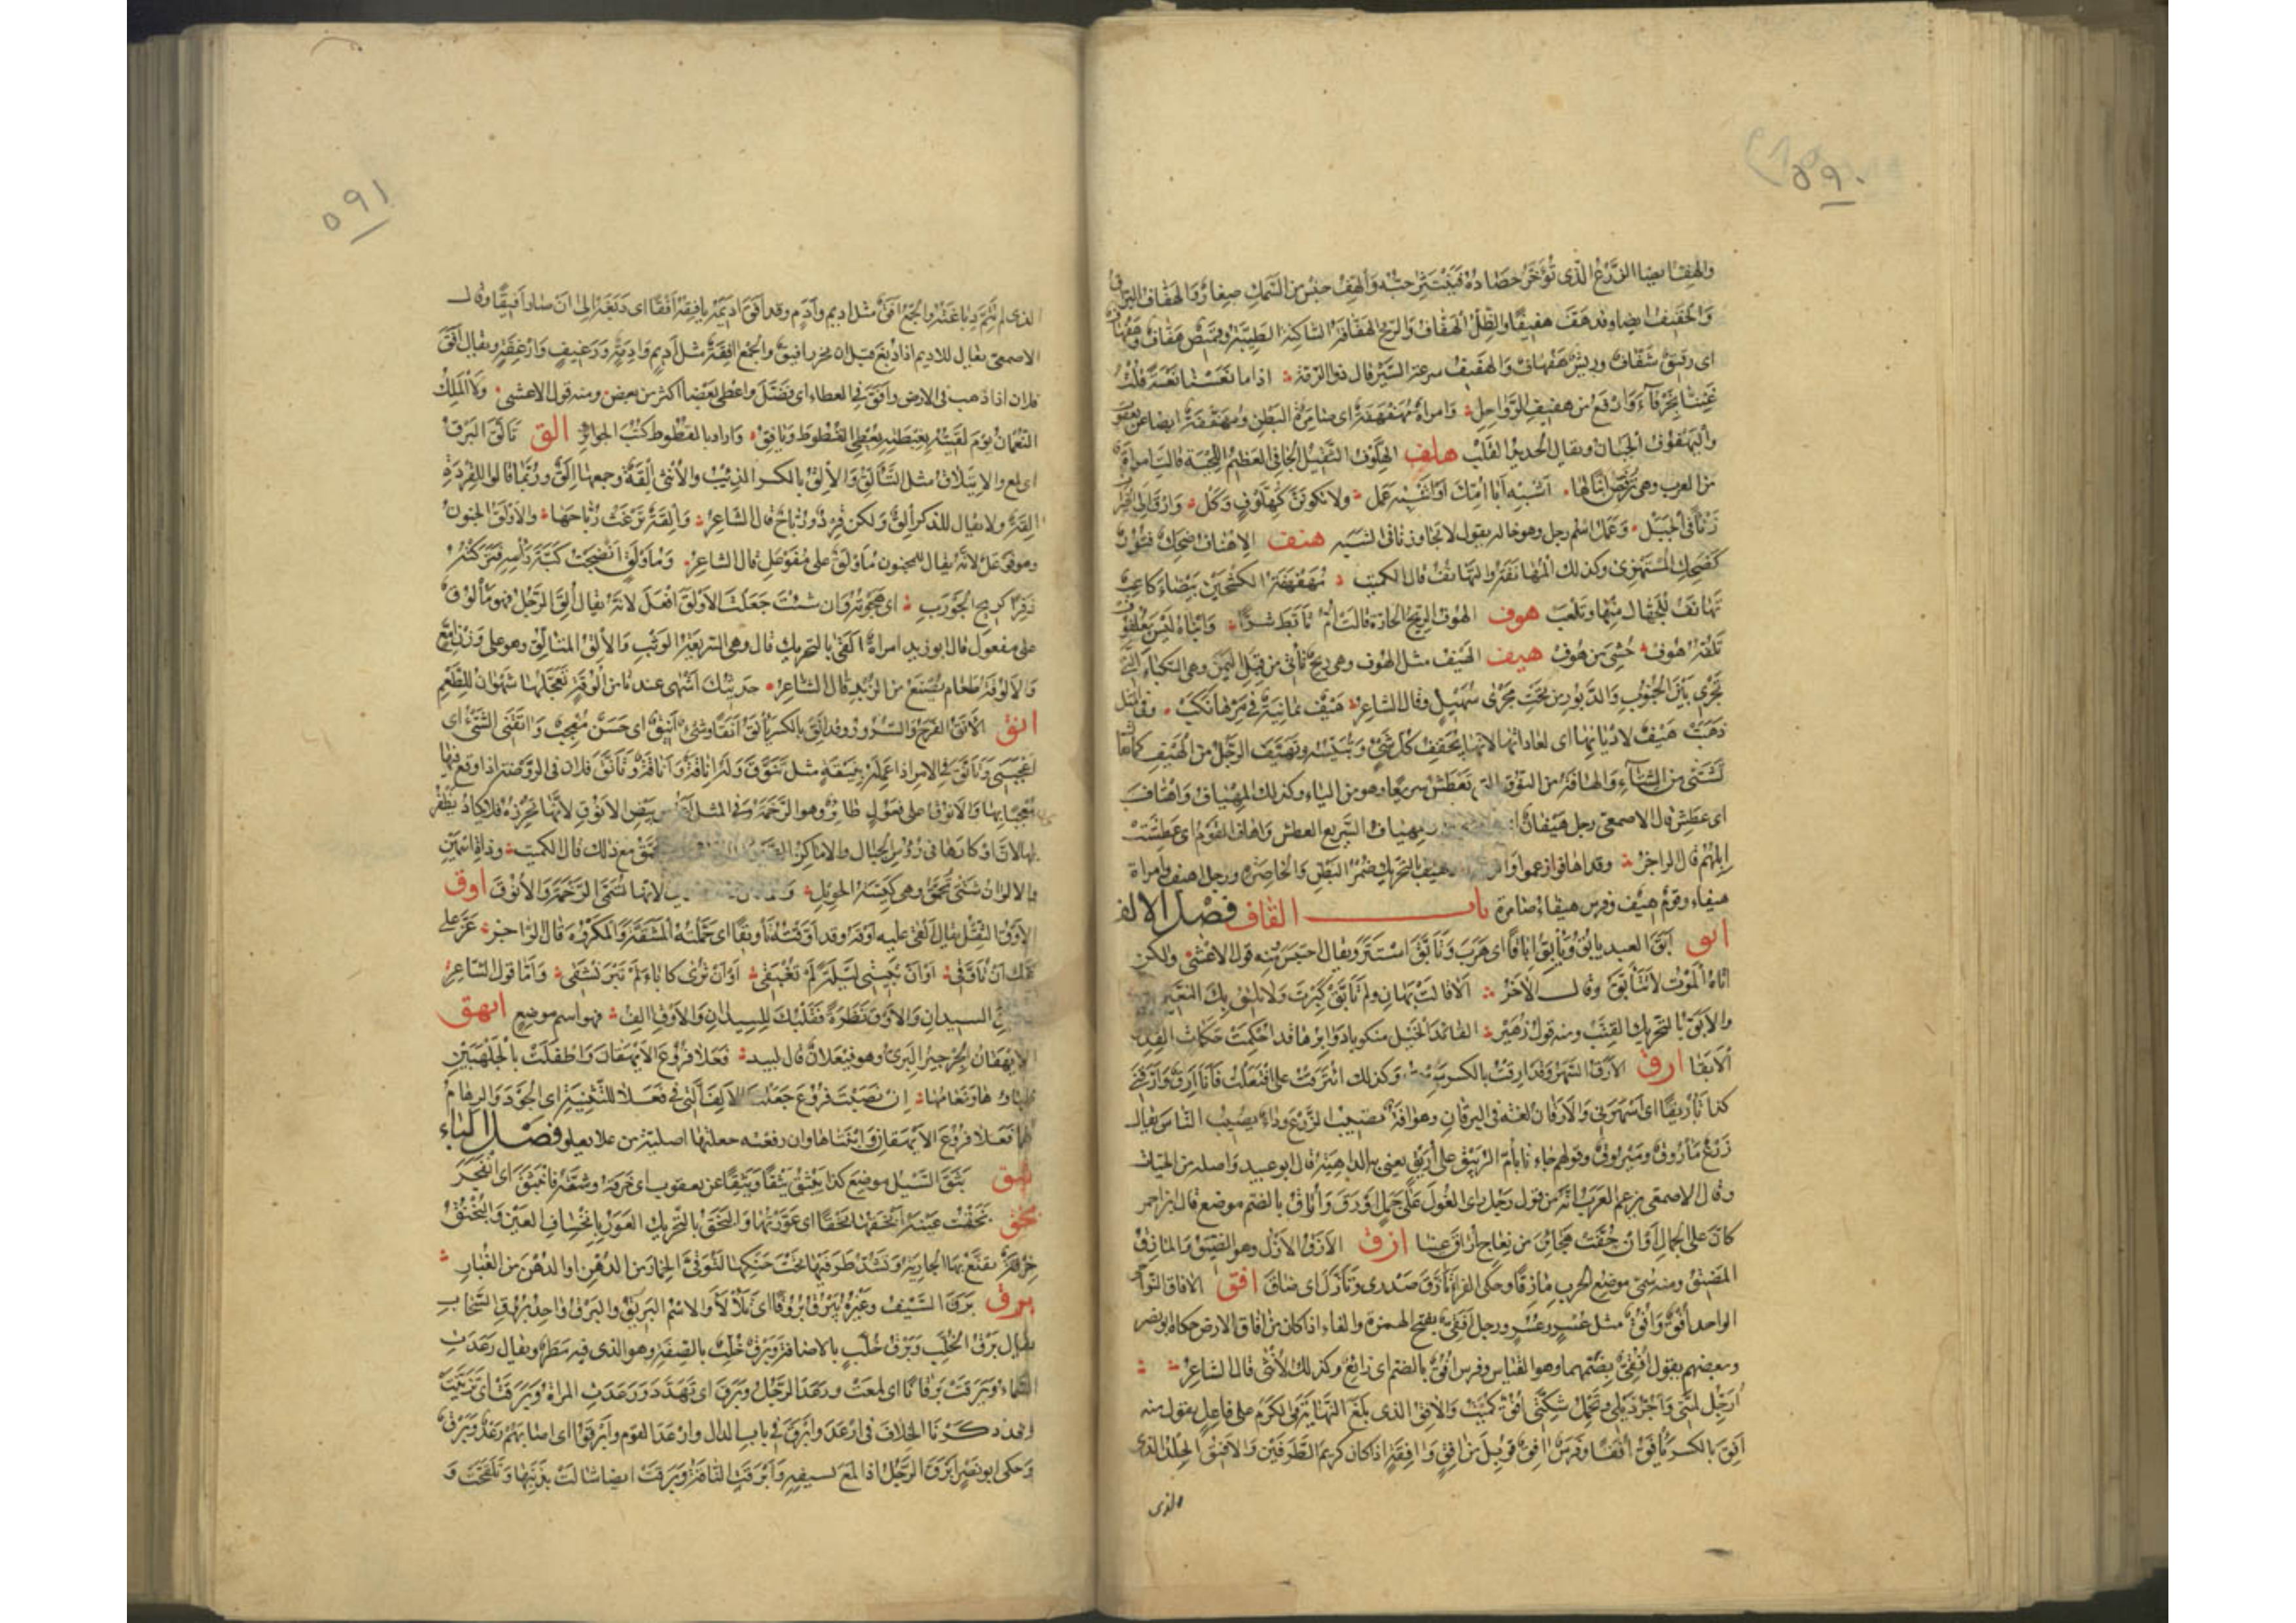 ٥٩٠
والهف ايضا الزرع الذى تؤخر حصاده فينتثر حبه والهف جنس من السمك صغار والهفاف البراق
والخفيف ايضا وقد هف هفيفا والظل الهفاف والريح الهفافة الساكنة الطيبة وقميص هفاف وهفهاف
اى رقيق شفاف وريش هفهاف والهفيف سرعة السير قال ذو الرمة اذا ما نعسنا نعسة قلت
غننا بخرقاء وارفع من هفيف الرواحل وامراة مهفهفة اى ضامرة البطن ومهفهفة ايضا عن يعقوب
واليهفوف الجبان ويقال الحديد القلب هلف الهلوف الثقيل الجافى العظيم اللحية قالت امراة
من العرب وهى ترقص ابنا لها اشبه ابا امك او اشبه عمل ولا تكونن كهلوف وكل وارق الى الخيرات
زنأ فى الجبل وعمل اسم رجل وهو خاله يقول لا تجاوزنا فى الشبه هنف الاهناف ضحك فيه فتور
كضحك المستهزئ وكذلك المهانفة والتهانف قال الكميت مهفهفة الكشحين بيضاء كاعب
تهانف للجهال منها وتلعب هوف الهوف الريح الحارة قالت ام تابط شرا وابناه ليس بعلفوف
تلفه هوف حشى من صوف هيف الهيف مثل الهوف وهى ريح تأتى من قبل اليمن وهى النكباء التى
تجرى بين الجنوب والدبور من تحت مجرى سهيل وقال الشاعر هيف يمانية فى مرها نكب وفى المثل
ذهبت هيف لاديانها اى لعاداتها لانها تجفف كل شئ وتيبسه وتهيف الرجل من الهيف كما يقال
تشتى من الشتاء والهافة من النوق التى تعطش سريعا وهو من الياء وكذلك المهياف واهاف
اى عطش قال الاصمعى رجل هيفان ومهياف السريع العطش واهاف القوم اى عطشت
ابلهم قال الراجز وقد اهافوا زعموا والهيف بالتحريك ضمر البطن والخاصرة ورجل اهيف وامراة
هيفاء وقوم هيف وفرس هيفاء ضامرة باب القاف فصل الالف
ابق ابق العبد يابق ويابق اباقا اى هرب وتابق استتر ويقال احتبس ومنه قول الاعشى ولكن
اتاه الموت لا يتابق وقال الاخر الا قالت بهان ولم تابق كبرت ولا يليق بك النعيم
والابق بالتحريك القنب ومنه قول زهير القائد الخيل منكوبا دوابرها قد احكمت حكمات القد
الابقا ارق الارق السهر وقد ارقت بالكسر وكذلك ائترقت على افتعلت فانا ارق وارقنى
كذا تأريقا اى اسهرنى والارقان لغة فى اليرقان وهو افة تصيب الزرع وداء يصيب الناس يقال
زرع مأروق وميروق وقولهم جاءنا بام الربيق على اريق يعنى به الداهية قال ابو عبيد واصله من الحيات
وقال الاصمعى يزعم العرب انه من قول رجل راى الغول على جمل اورق واراق بالضم موضع قال ابن احمر
كان على الجمال اوان خفت هجائن من نعاج اراق عينا ازق الازق الازل وهو الضيق والمازق
المضيق ومنه سمى موضع الحرب مازقا وحكى الفراء تأزق صدرى وتازل اى ضاق افق الافاق النواحى
الواحد افق وافق مثل عسر وعسر ورجل افقى بفتح الهمزة والفاء اذا كان من افاق الارض حكاه ابو نصر
وبعضهم يقول افقى بضمهما وهو القياس وفرس افق بالضم اى رائع وكذلك الانثى قال الشاعر
ارجل لمتى واجر ذيلى وتحمل شكتى افق كميت والافق الذى بلغ النهاية فى الكرم على فاعل يقول منه
افق بالكسر يأفق افقا وفرس افق قوبل من افق وافقة اذا كان كريم الطرفين والافيق الجلد الذى
الذى
٥٩١
الذى لم يتم دباغته والجمع افق مثل اديم وادم وقد افق اديمه يافقه افقا اى دبغه الى ان صار افيقا وقال
الاصمعى يقال للاديم اذا دبغ قبل ان يخرز افيق والجمع افقة مثل اديم وادمة ورغيف وارغفة ويقال افق
فلان اذا ذهب فى الارض وافق فى العطاء اى فضل واعطى بعضا اكثر من بعض ومنه قول الاعشى ولا الملك
النعمان يوم لقيته بغبطته يعطى القطوط ويافق واراد بالقطوط كتب الجوائز الق تالق البرق
اى لمع والايتلاق مثل التألق والالق بالكسر الذئب والانثى القة وجمعها الق وربما قالوا للقردة
القة ولا يقال للذكر الق ولكن قرد ورباح قال الشاعر والقة ترغث رباحها والاولق الجنون
وهو فوعل لانه يقال للمجنون مأولق على مفوعل قال الشاعر ومأولق انضجت كية راسه فتركته
ذفرا كريح الجورب اى هجوته وان شئت جعلت الاولق افعل لانه يقال الق الرجل فهو مألوق
على مفعول قال ابو زيد امراة القى بالتحريك قال وهى السريعة الوثب والالق المتالق وهو على وزن امع
والالوقة طعام يصنع من الزبد قال الشاعر حديثك اشهى عندنا من الوقة تعجلها شهوان للطعم
انق الانق الفرح والسرور وقد انق بالكسر يأنق انقا وشئ انيق اى حسن معجب وانقنى الشئ اى
اعجبنى وتانق فى الامر اذا عمله بنيقة مثل تنوق وله اناقة واناقة وتانق فلان فى الروضة اذا وقع فيها
معجبا بها والانوق على فعول طائر وهو الرخمة وفى المثل اعز من بيض الانوق لانها تحرزه فلا يكاد يظفر
بها لان اوكارها فى رؤس الجبال والاماكن الصعبة وهى تحمق مع ذلك قال الكميت وذات اسمين
والالوان شتى تحمق وهى كيسة الحويل لانها تسمى الرخمة والانوق اوق
الاوق الثقل يقال القى عليه اوقه وقد اوقته تأويقا اى حملته المشقة والمكروه قال الراجز عز على
عمك ان تأوقى او ان تبيتى ليلة لم تغبقى او ان ترى كاباء لم تبرنشقى واما قول الشاعر
السيدان والاوق نظرة فقلبك للسيدان والاوق الف فهو اسم موضع ايهق
الايهقان الجرجير البرى وهو فيعلان قال لبيد فعلا فروع الايهقان واطفلت بالجلهتين
ظباؤها ونعامها ان نصبت فروع جعلت الالف التى فى فعلا للتثنية اى الجود والرهام
هما فعلا فروع الايهقان وانبتاها وان رفعته جعلتها اصلية من علا يعلو فصل الباء
بثق بثق السيل موضع كذا يبثق بثقا وبثقا عن يعقوب اى خرقه وشقه فانبثق اى انفجر
بخق بخقت عينه ابخقها بخقا اى عورتها والبخق بالتحريك العور بانخساف العين والبخنق
خرقة تقنع بها الجارية وتشد طرفيها تحت حنكها لتوقى الخمار من الدهن او الدهن من الغبار
برق برق السيف وغيره يبرق بروقا اى تلألأ والاسم البريق والبرق واحد بروق السحاب
يقال برق الخلب وبرق خلب بالاضافة وبرق خلب بالصفة وهو الذى ليس فيه مطر ويقال رعدت
السماء وبرقت برقانا اى لمعت ورعد الرجل وبرق اى تهدد ورعدت المراة وبرقت اى تزينت
وقد ذكرنا الخلاف فى ارعد وابرق فى باب الدال وارعد القوم وابرقوا اى اصابهم رعد وبرق
وحكى ابو نصر ابرق الرجل اذا لمع بسيفه وابرقت الناقة وبرقت ايضا شالت بذنبها وتلقحت و